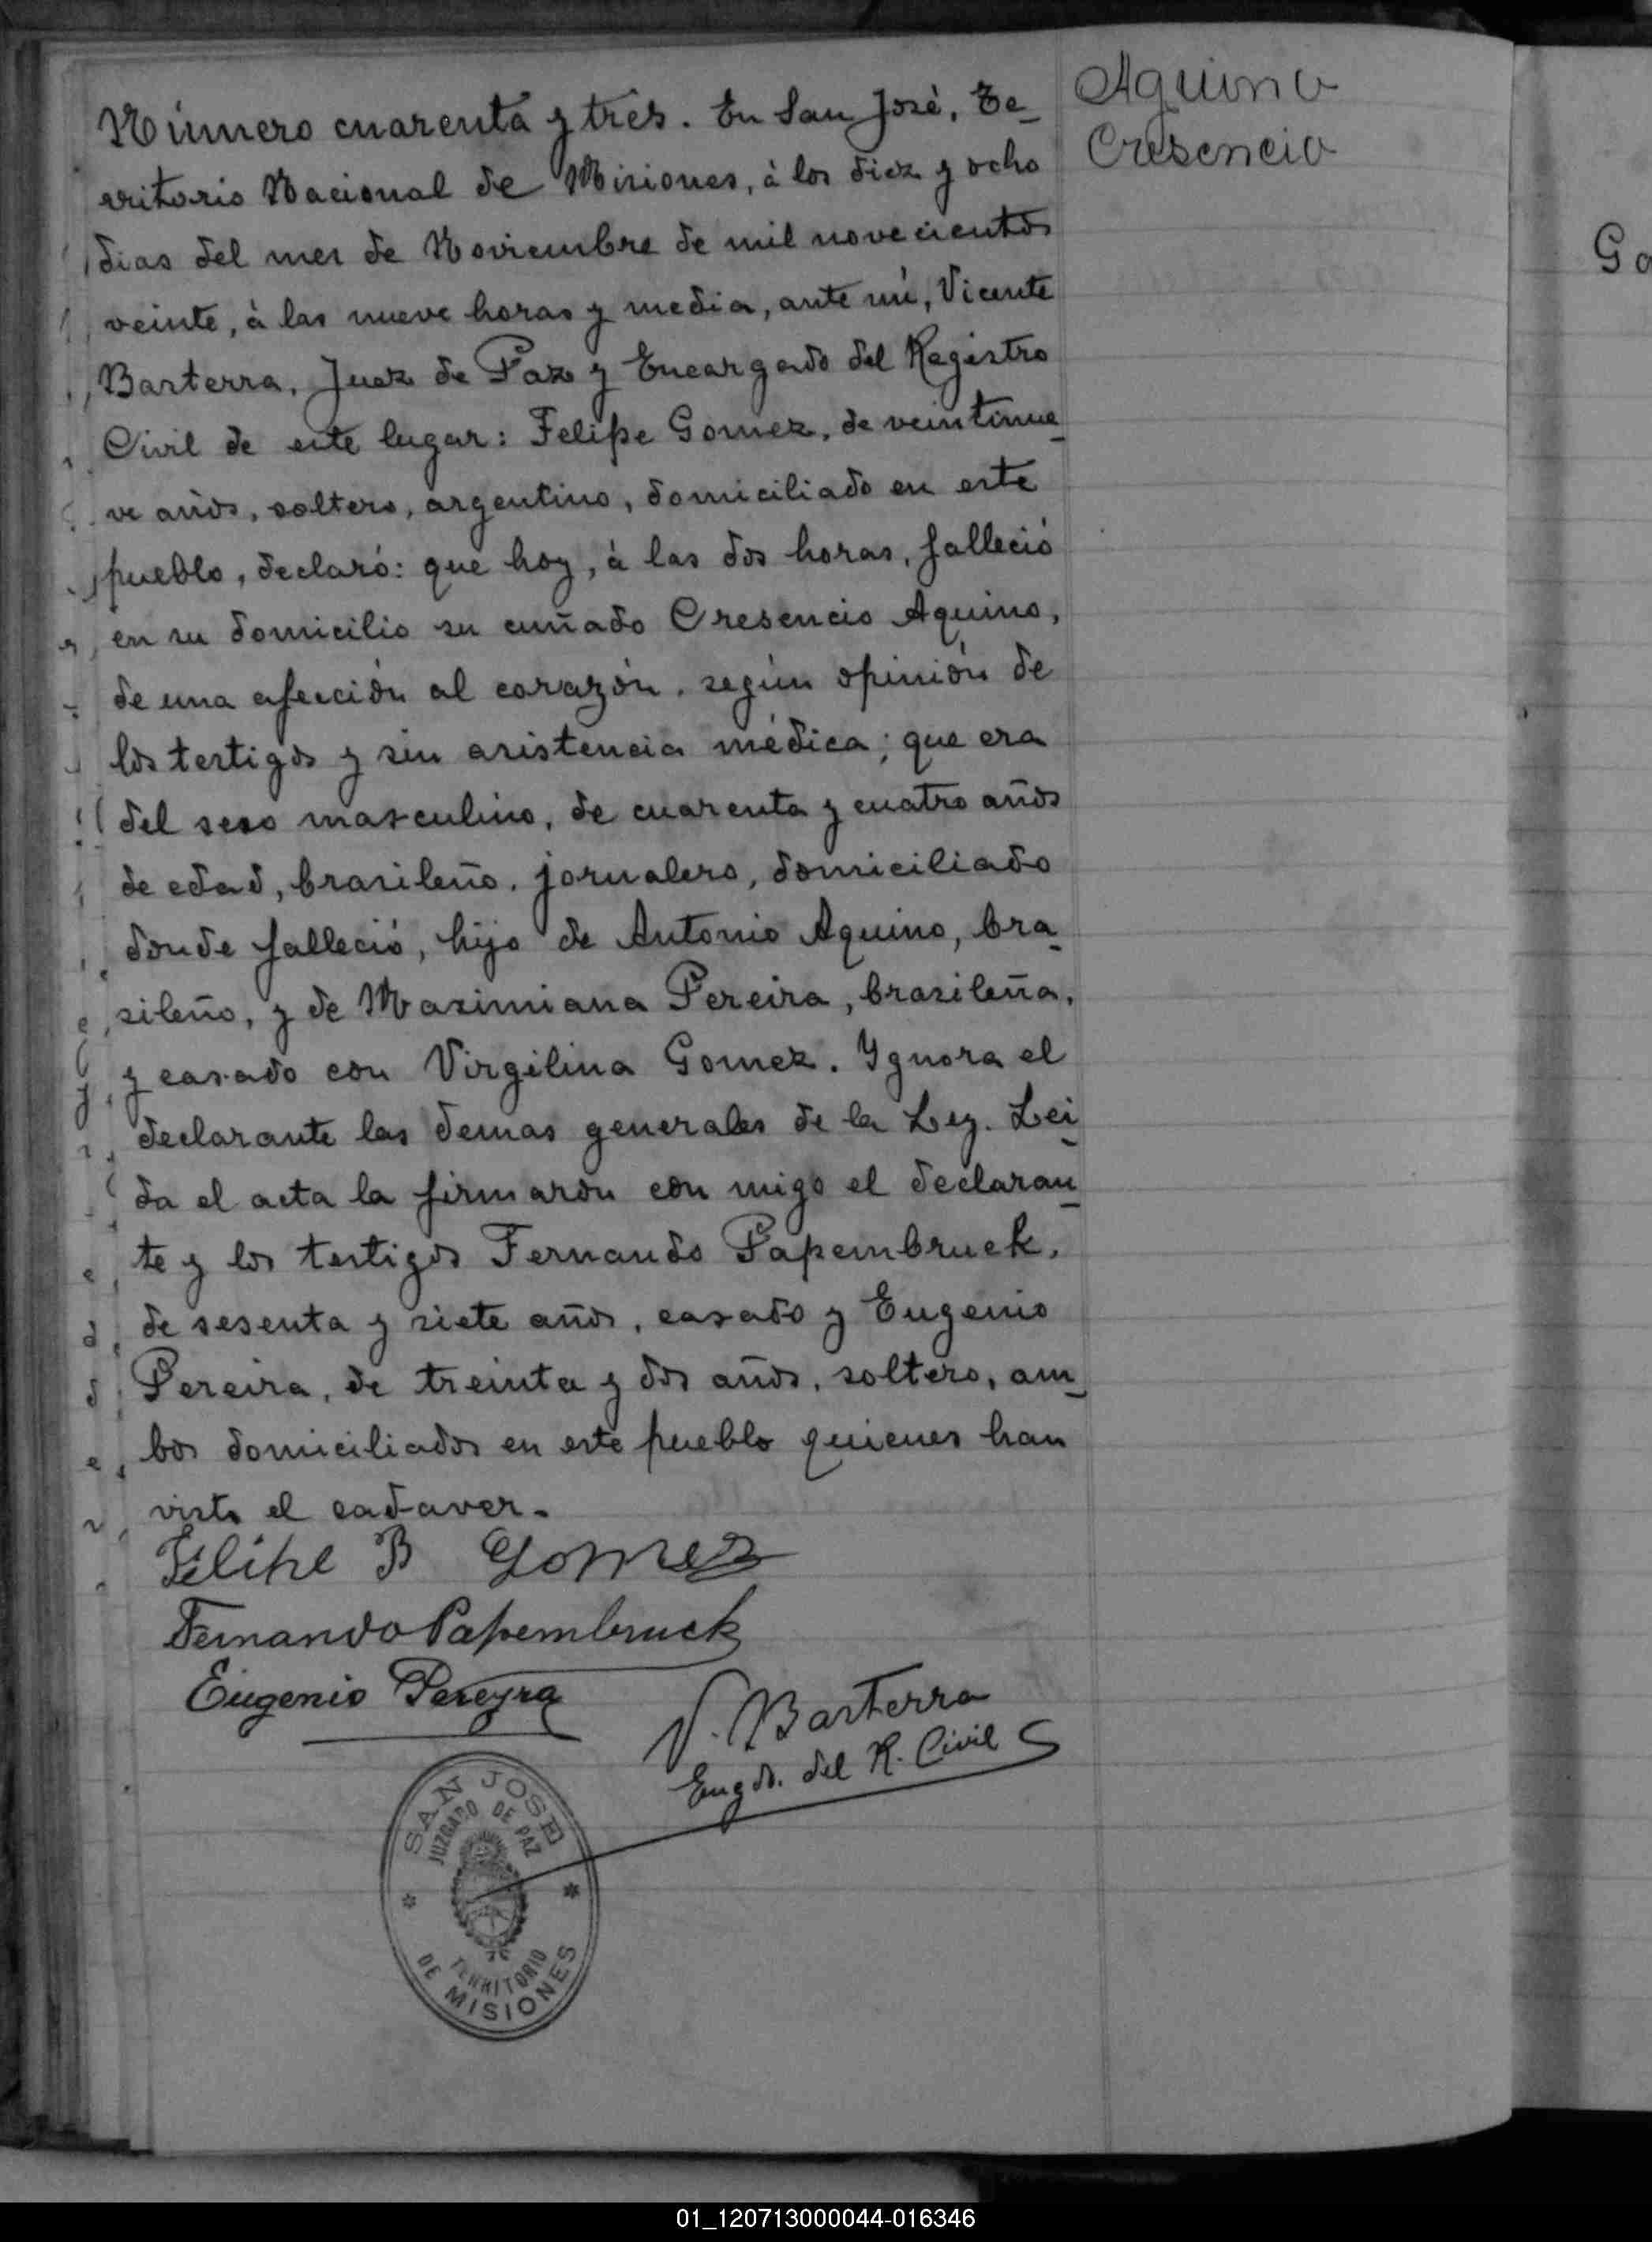 Número cuarenta y tres. En San José, Te_
rritorio Nacional de Misiones, à los diez y ocho
dias del mes de Noviembre de mil novecientos
veinte, à las nueve horas y media, ante mi, Vicente
Basterra, Juez de Paz y Encargado del Registro
Civil de este lugar: Felipe Gomez, de veintinue_
ve años, soltero, argentino, domiciliado en este
pueblo, declaró: que hoy, à las dos horas, falleció
en su domicilio su cuñado Cresencio Aquino,
de una afección al corazón, según opinión de
los testigos y sin asistencia médica; que era
del sexo masculino, de cuarenta y cuatro años
de edad, brasileño, jornalero, domiciliado
donde falleció, hijo de Antonio Aquino, bra_
sileño, y de Maximiana Pereira, brasileña,
y casado con Virgilina Gomez. Ygnora el
declarante las demas generales de la Ley. Lei_
da el acta la firmaron con migo el declaran_
te y los testigos Fernando Papembruck,
de sesenta y siete años, casado y Eugenio
Pereira, de treinta y dos años, soltero, am_
bos domiciliados en este pueblo quienes han
visto el cadaver.
Felipe B Gomez
Fernando Papembruck
Eugenio Pereyra
V. Basterra
Engdo. del R. Civil
SAN JOSE
JUZGADO DE PAZ
TERRITORIO
DE MISIONES
Aquino
Cresencio
Go
01_120713000044-016346